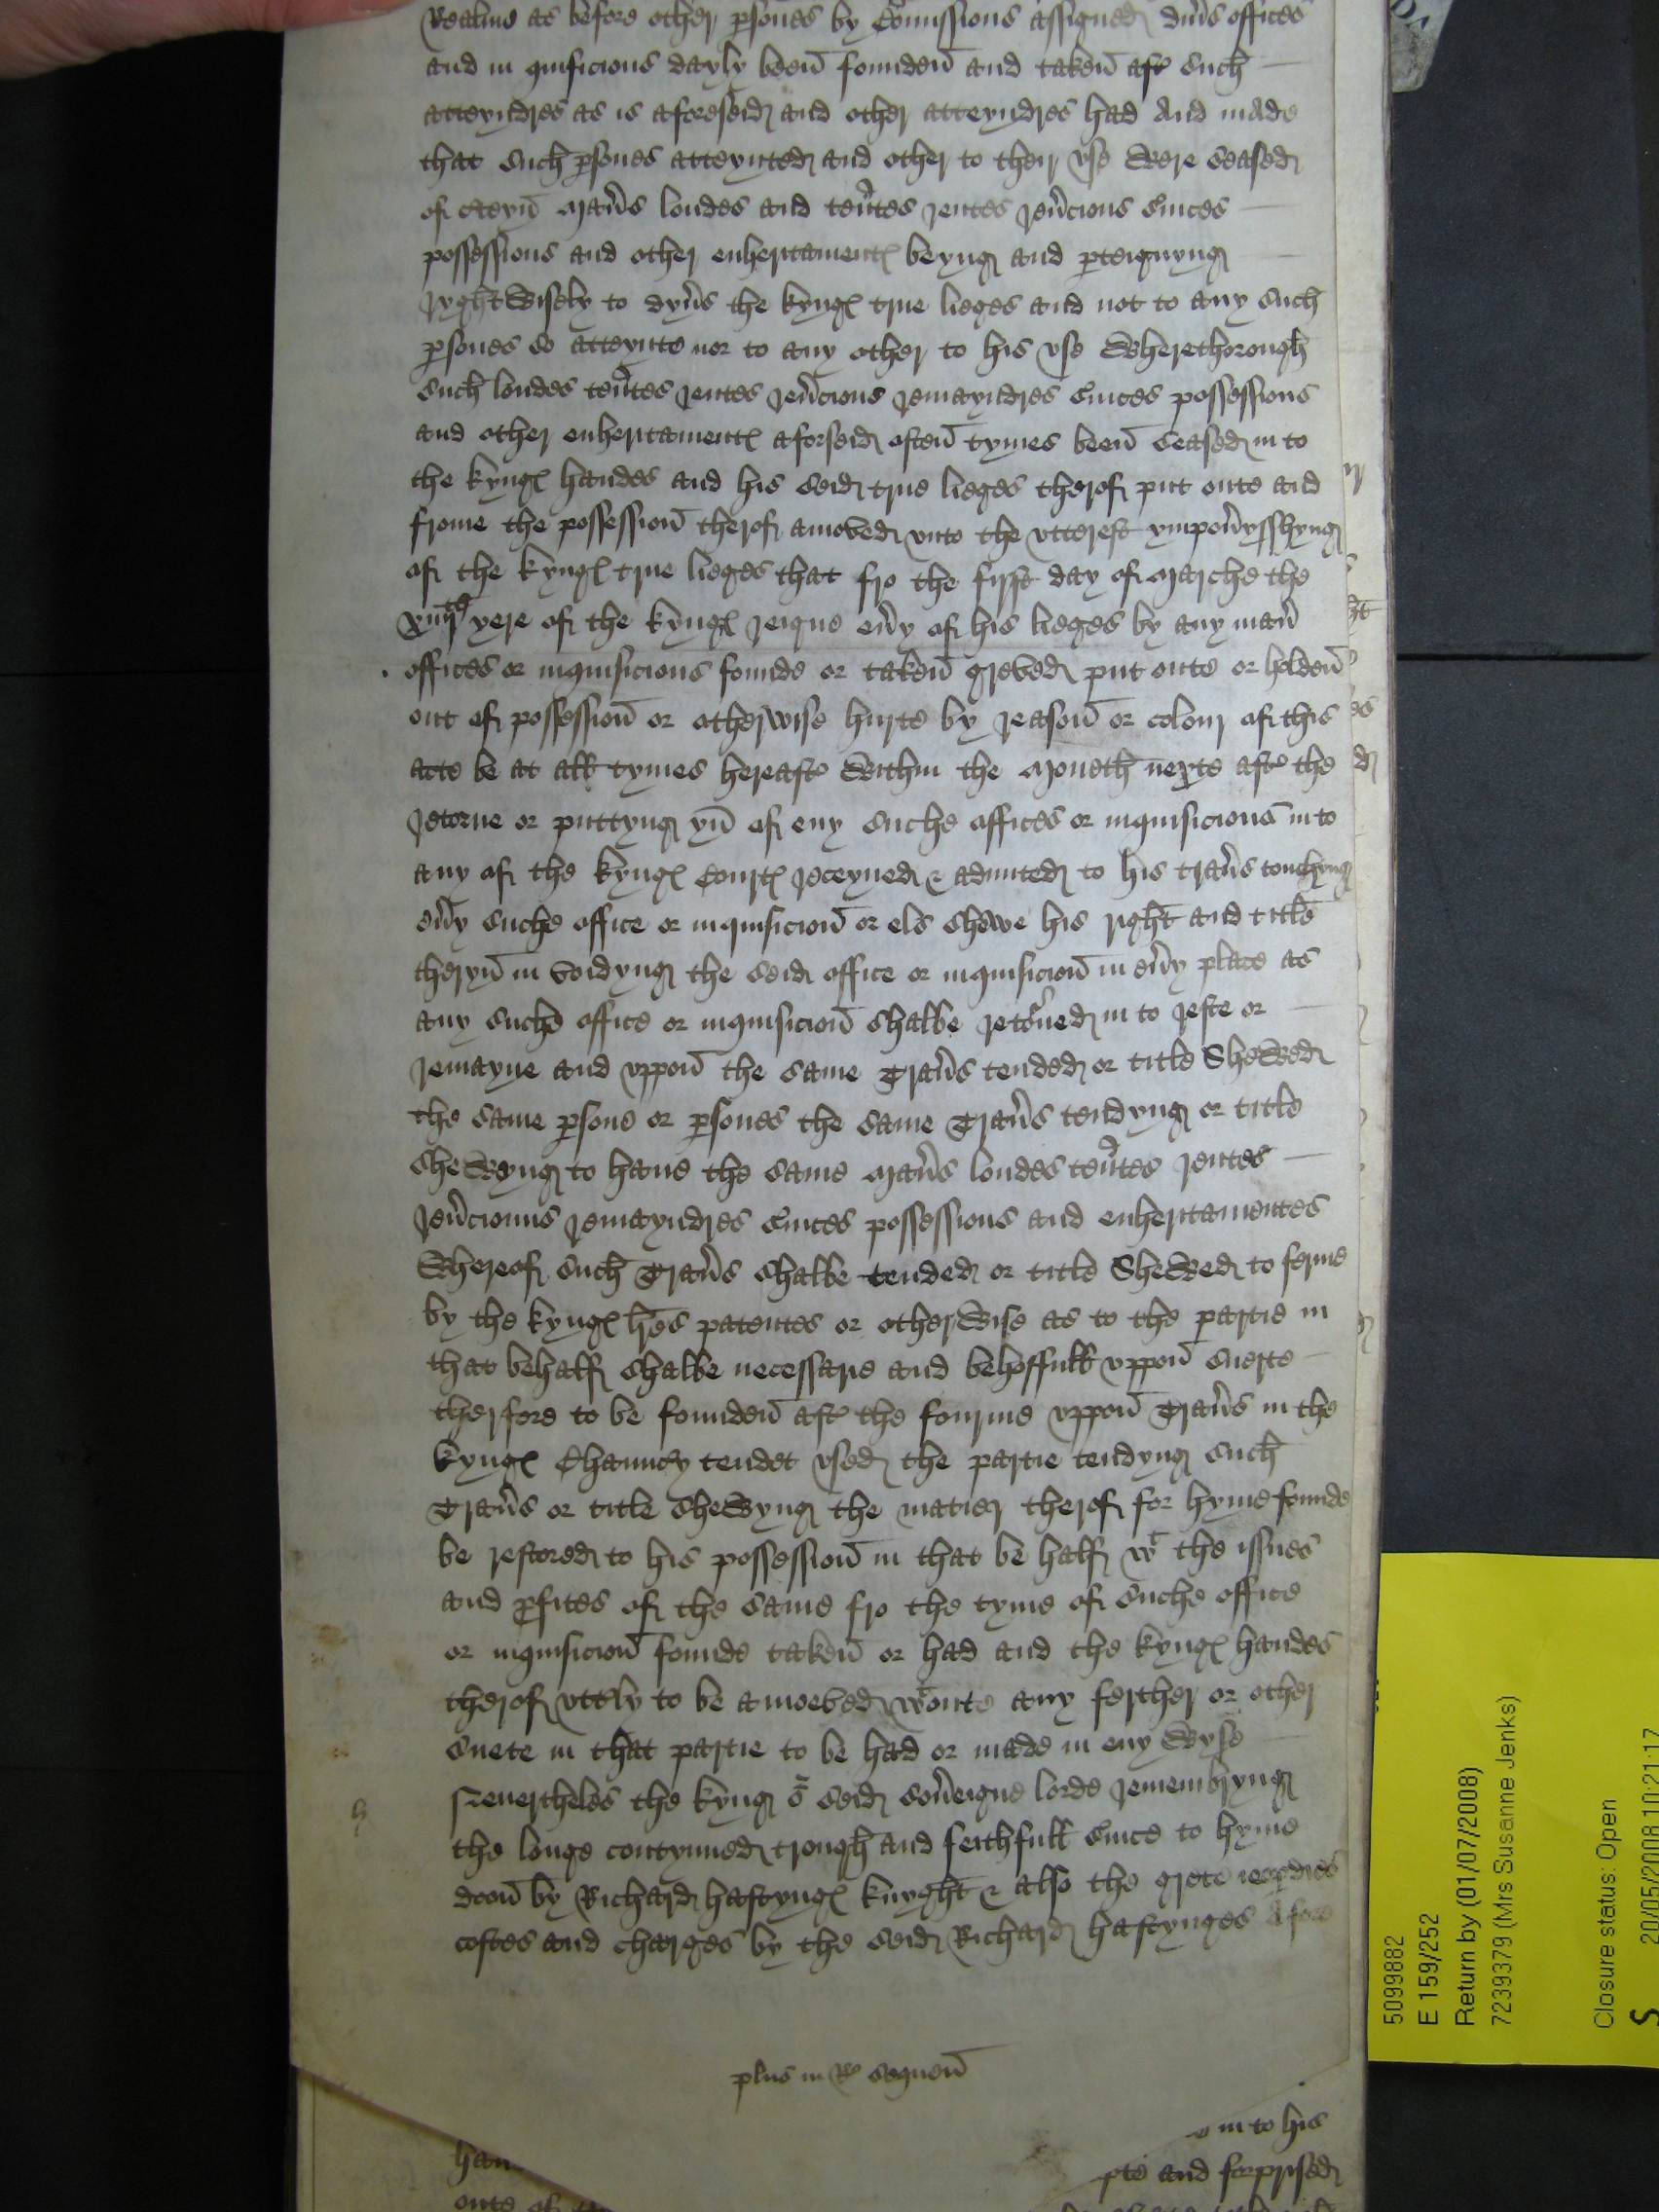 Realme as before other psones by Comissions assigned dius offices
and in quisicions dayly been founden and taken aft such
atteyndres as is aforeseid and other atteyndres had And made
that such psones atteynted and other to their vse Were seased
of cteyn Maners londes and tentes rentes reucions suices
possessions and other enheritamentes beyng and pteignyng
ryghtWisely to dyus the kynges true lieges and not to any such
psones so atteynte nor to any other to his vse Wherethorough
such londes tentes rentes reucions remayndres suices possessions
and other enheritamentes aforseid often tymes been seased in to
the kynges handes and his seid true lieges therof put oute and
frome the possession therof amoved vnto the vtterest ympouysshyng
of the kynges true lieges that fro the first day of Marche the
yere of the kynges reigne euy of his lieges by any man
offices or inquisicions founde or taken greved put oute or holden
out of possession or otherwise hurte by reason or colour of this
acte be at all tymes hereaft Within the Moneth nexte aft the
retorne or puttyng yn of eny suche offices or inquisicions into
any of the kynges Courtes receyued & admitted to his traus touchyng
euy suche office or inquisicion or els shewe his right and title
theryn in voidyng the seid office or inquisicion in euy place as
any suche office or inquisicion shalbe retoured in to reste or
remayne and vppon the same Traus tended or title SheWed
the same psone or psones the same Traus tendyng or title
sheWyng to haue the same Maners londes tentes rentes
reucionus remayndres suices possessions and enheritamentes
Whereof such Traus shalbe tended or title SheWed to ferme
by the kynges lres patentes or otherWise as to the partie in
that behalf shalbe necessarie and behoffull vppon suerte
therfore to be founden aft the fourme vppon Traus in the
kynges Chauncy tendet vsed the partie tendyng such
Traus or title sheWyng the matier therof for hyme founde
be restored to his possession in that be half wt the issues
and pfites of the same fro the tyme of suche office
or inquisicion founde taken or had and the kynges handes
therof vttly to be amoeved wtoute any ferther or other
suete in that partie to be had or made in eny Wyse
Neuertheles the kyng or seid soueigne lorde remembryng
the longe contynued trough and feithfull suice to hyme
doon by Richard hastynges knyght & also the grete ieopdies
costes and charges by the seid Richard hastynges afore
plus in Ro sequen
in to his
pte and forprised
5099882
E 159/252
Return by (01/07/2008)
7239379 (Mrs Susanne Jenks)
Closure status: Open
20/05/2008 10:21:17